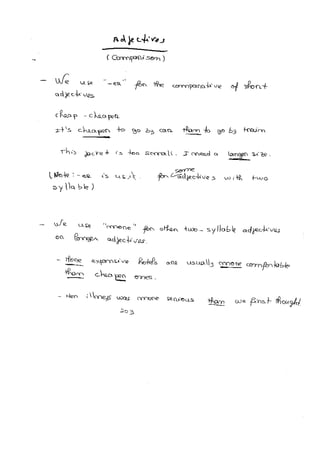 Adjectives
(Comparison)
- We use "-er" for the comparative of short
adjectives
cheap - cheaper
It's cheaper to go by car than to go by train
This jacket is too small. I need a larger size.
(Note: - er is used for some adjectives with two
syllable)
- We use "more" for other two-syllable adjectives
or longer adjectives.
- More expensive hotels are usually more comfortable
than cheaper ones.
- Her illness was more serious than we first thought
203